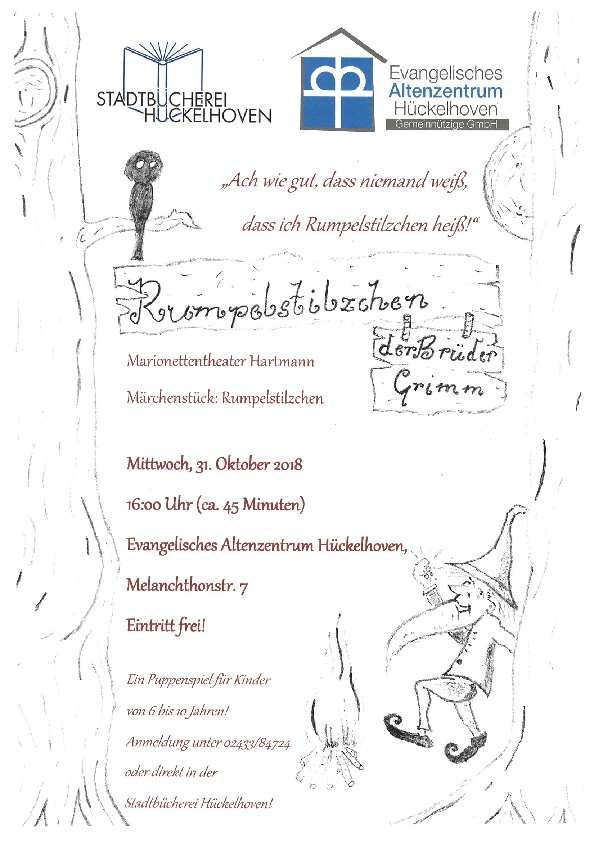 STADTBÜCHEREI
HÜCKELHOVEN
Evangelisches
Altenzentrum
Hückelhoven
Gemeinnützige GmbH
„Ach wie gut, dass niemand weiß,
dass ich Rumpelstilzchen heiß!“
Rumpelstilzchen
der Brüder
Grimm
Marionettentheater Hartmann
Märchenstück: Rumpelstilzchen
Mittwoch, 31. Oktober 2018
16:00 Uhr (ca. 45 Minuten)
Evangelisches Altenzentrum Hückelhoven,
Melanchthonstr. 7
Eintritt frei!
Ein Puppenspiel für Kinder
von 6 bis 10 Jahren!
Anmeldung unter 02433/84724
oder direkt in der
Stadtbücherei Hückelhoven!